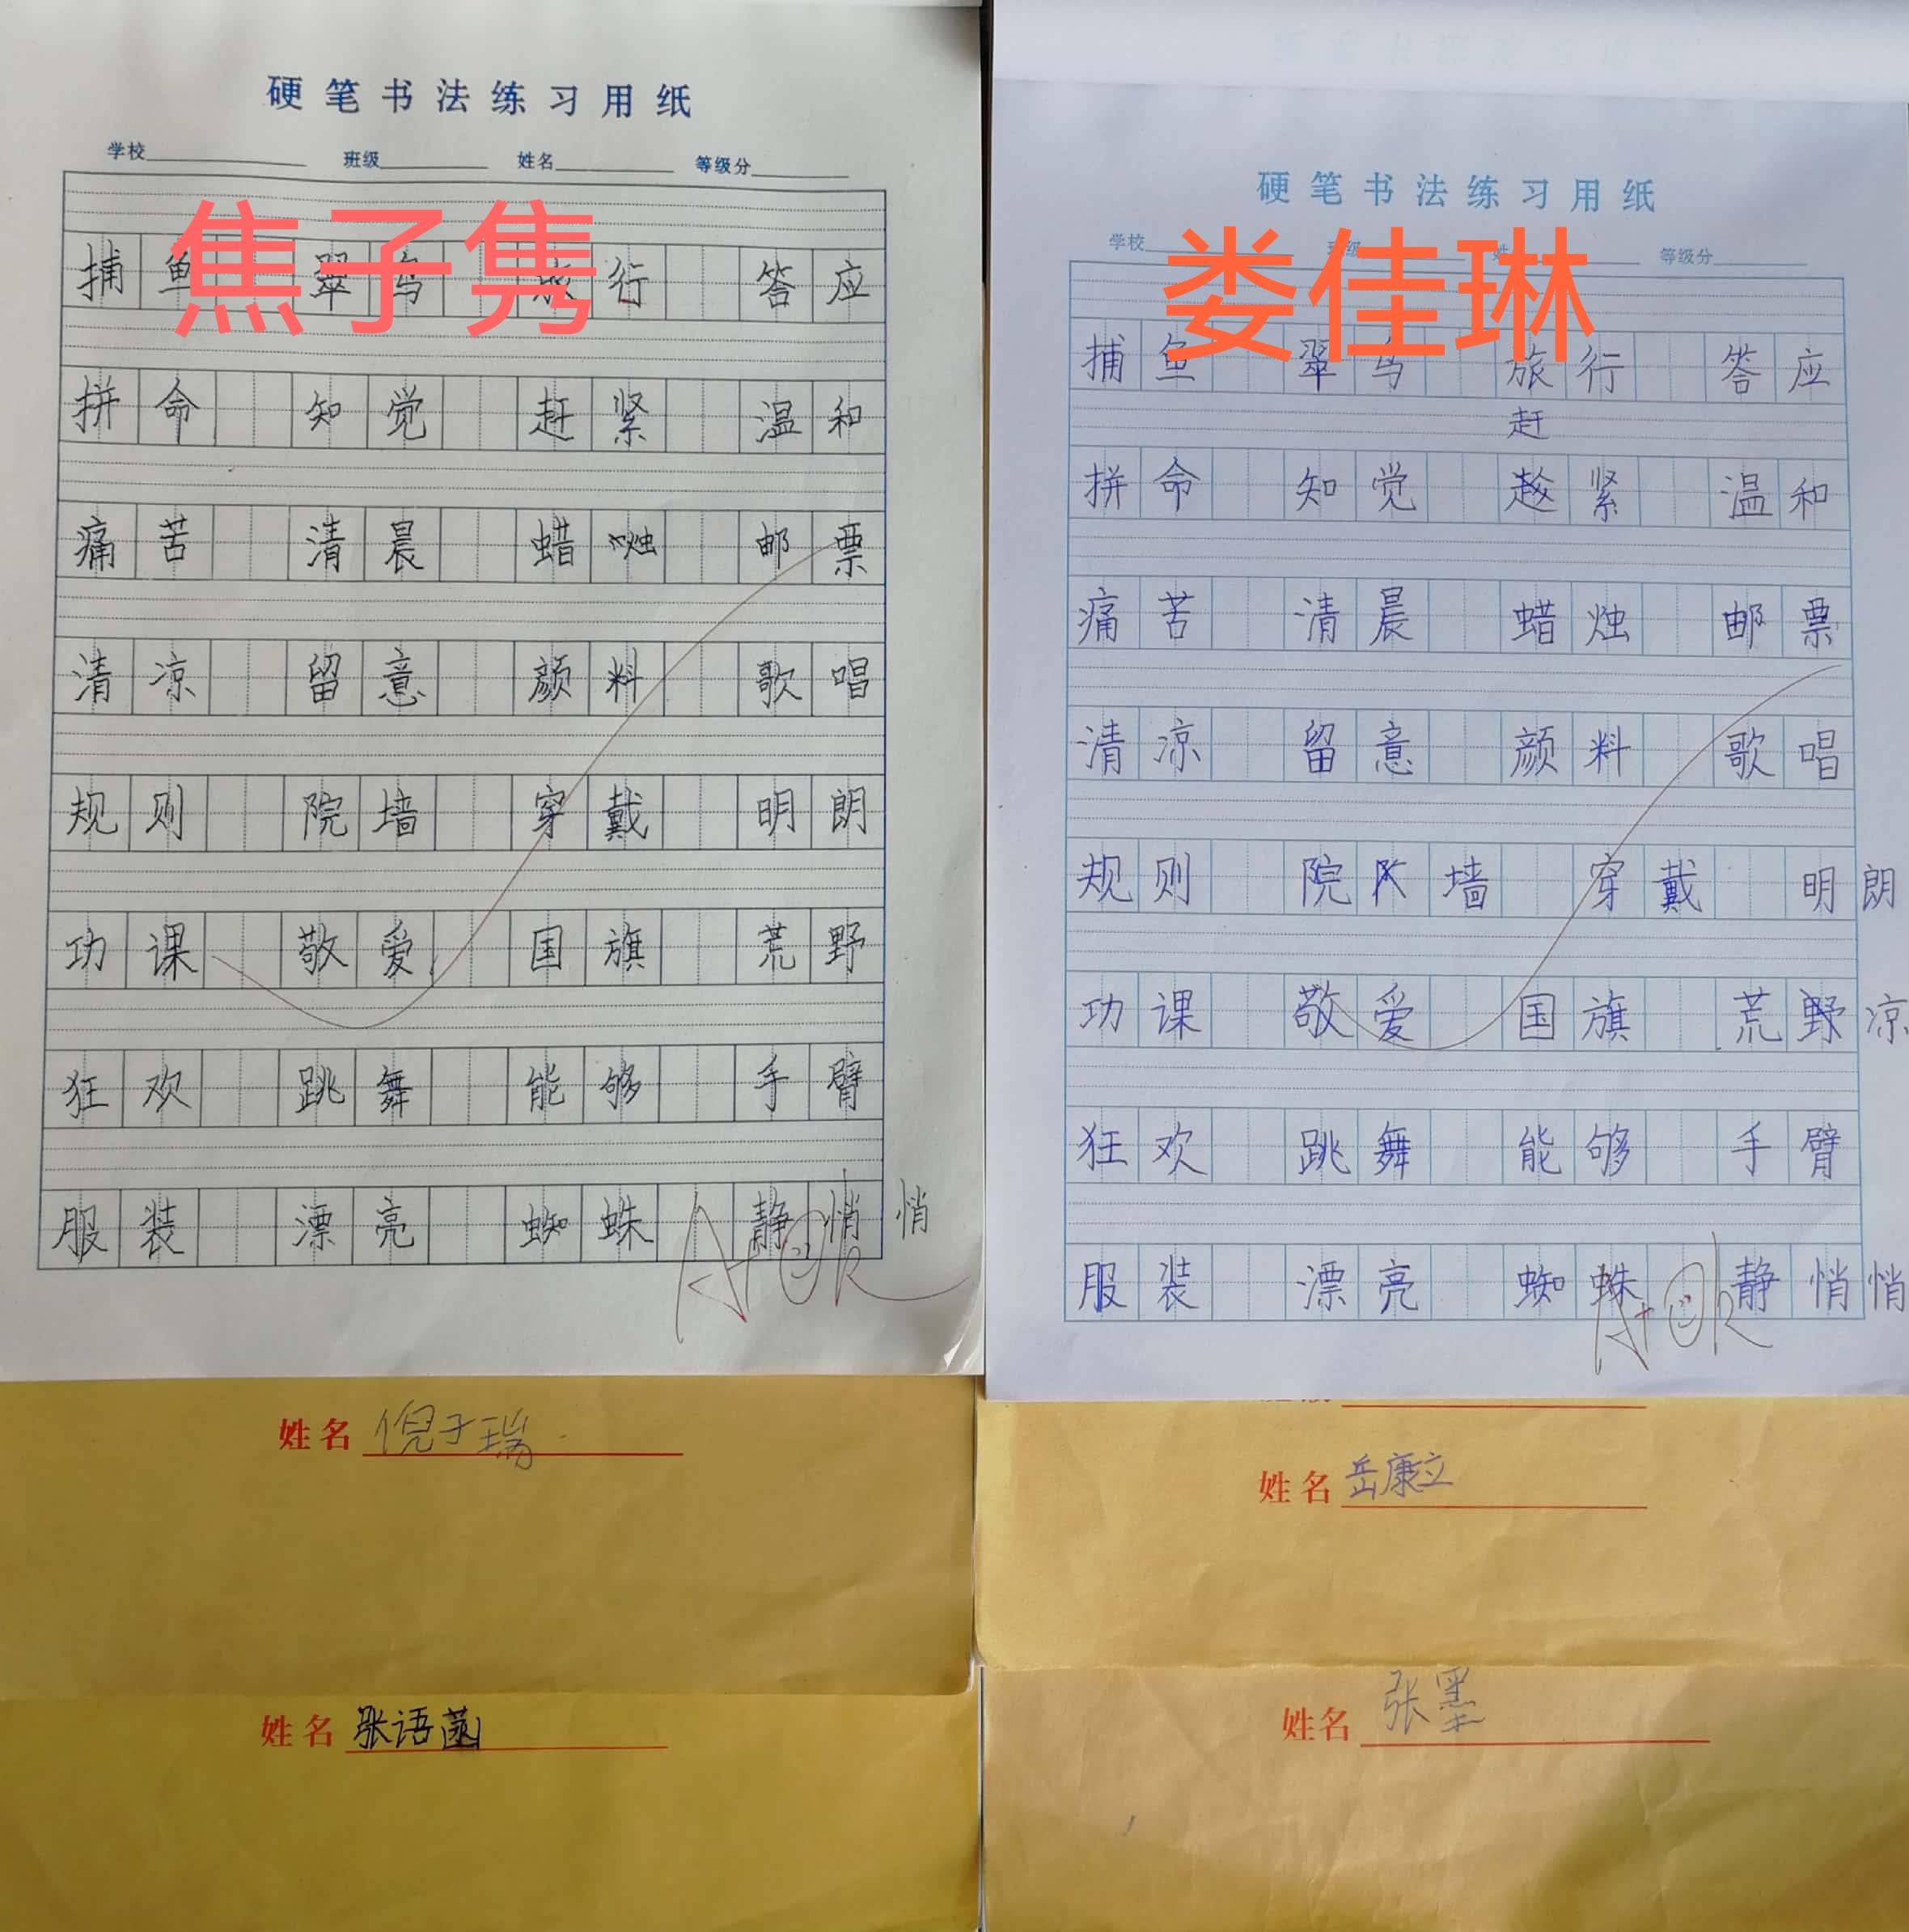 硬笔书法练习用纸
学校 班级 姓名 等级分
焦子隽
捕鱼 翠鸟 旅行 答应
拼命 知觉 赶紧 温和
痛苦 清晨 蜡烛 邮票
清凉 留意 颜料 歌唱
规则 院墙 穿戴 明朗
功课 敬爱 国旗 荒野
狂欢 跳舞 能够 手臂
服装 漂亮 蜘蛛 静悄悄
A+ OK
硬笔书法练习用纸
学校 班级 姓名 等级分
娄佳琳
捕鱼 翠鸟 旅行 答应
赶
拼命 知觉 紧 温和
痛苦 清晨 蜡烛 邮票
清凉 留意 颜料 歌唱
规则 院墙 穿戴 明朗
功课 敬爱 国旗 荒野凉
狂欢 跳舞 能够 手臂
服装 漂亮 蜘蛛 静悄悄
A+ OK
姓名 倪于瑞
姓名 岳康立
姓名 张语菡
姓名 张墨